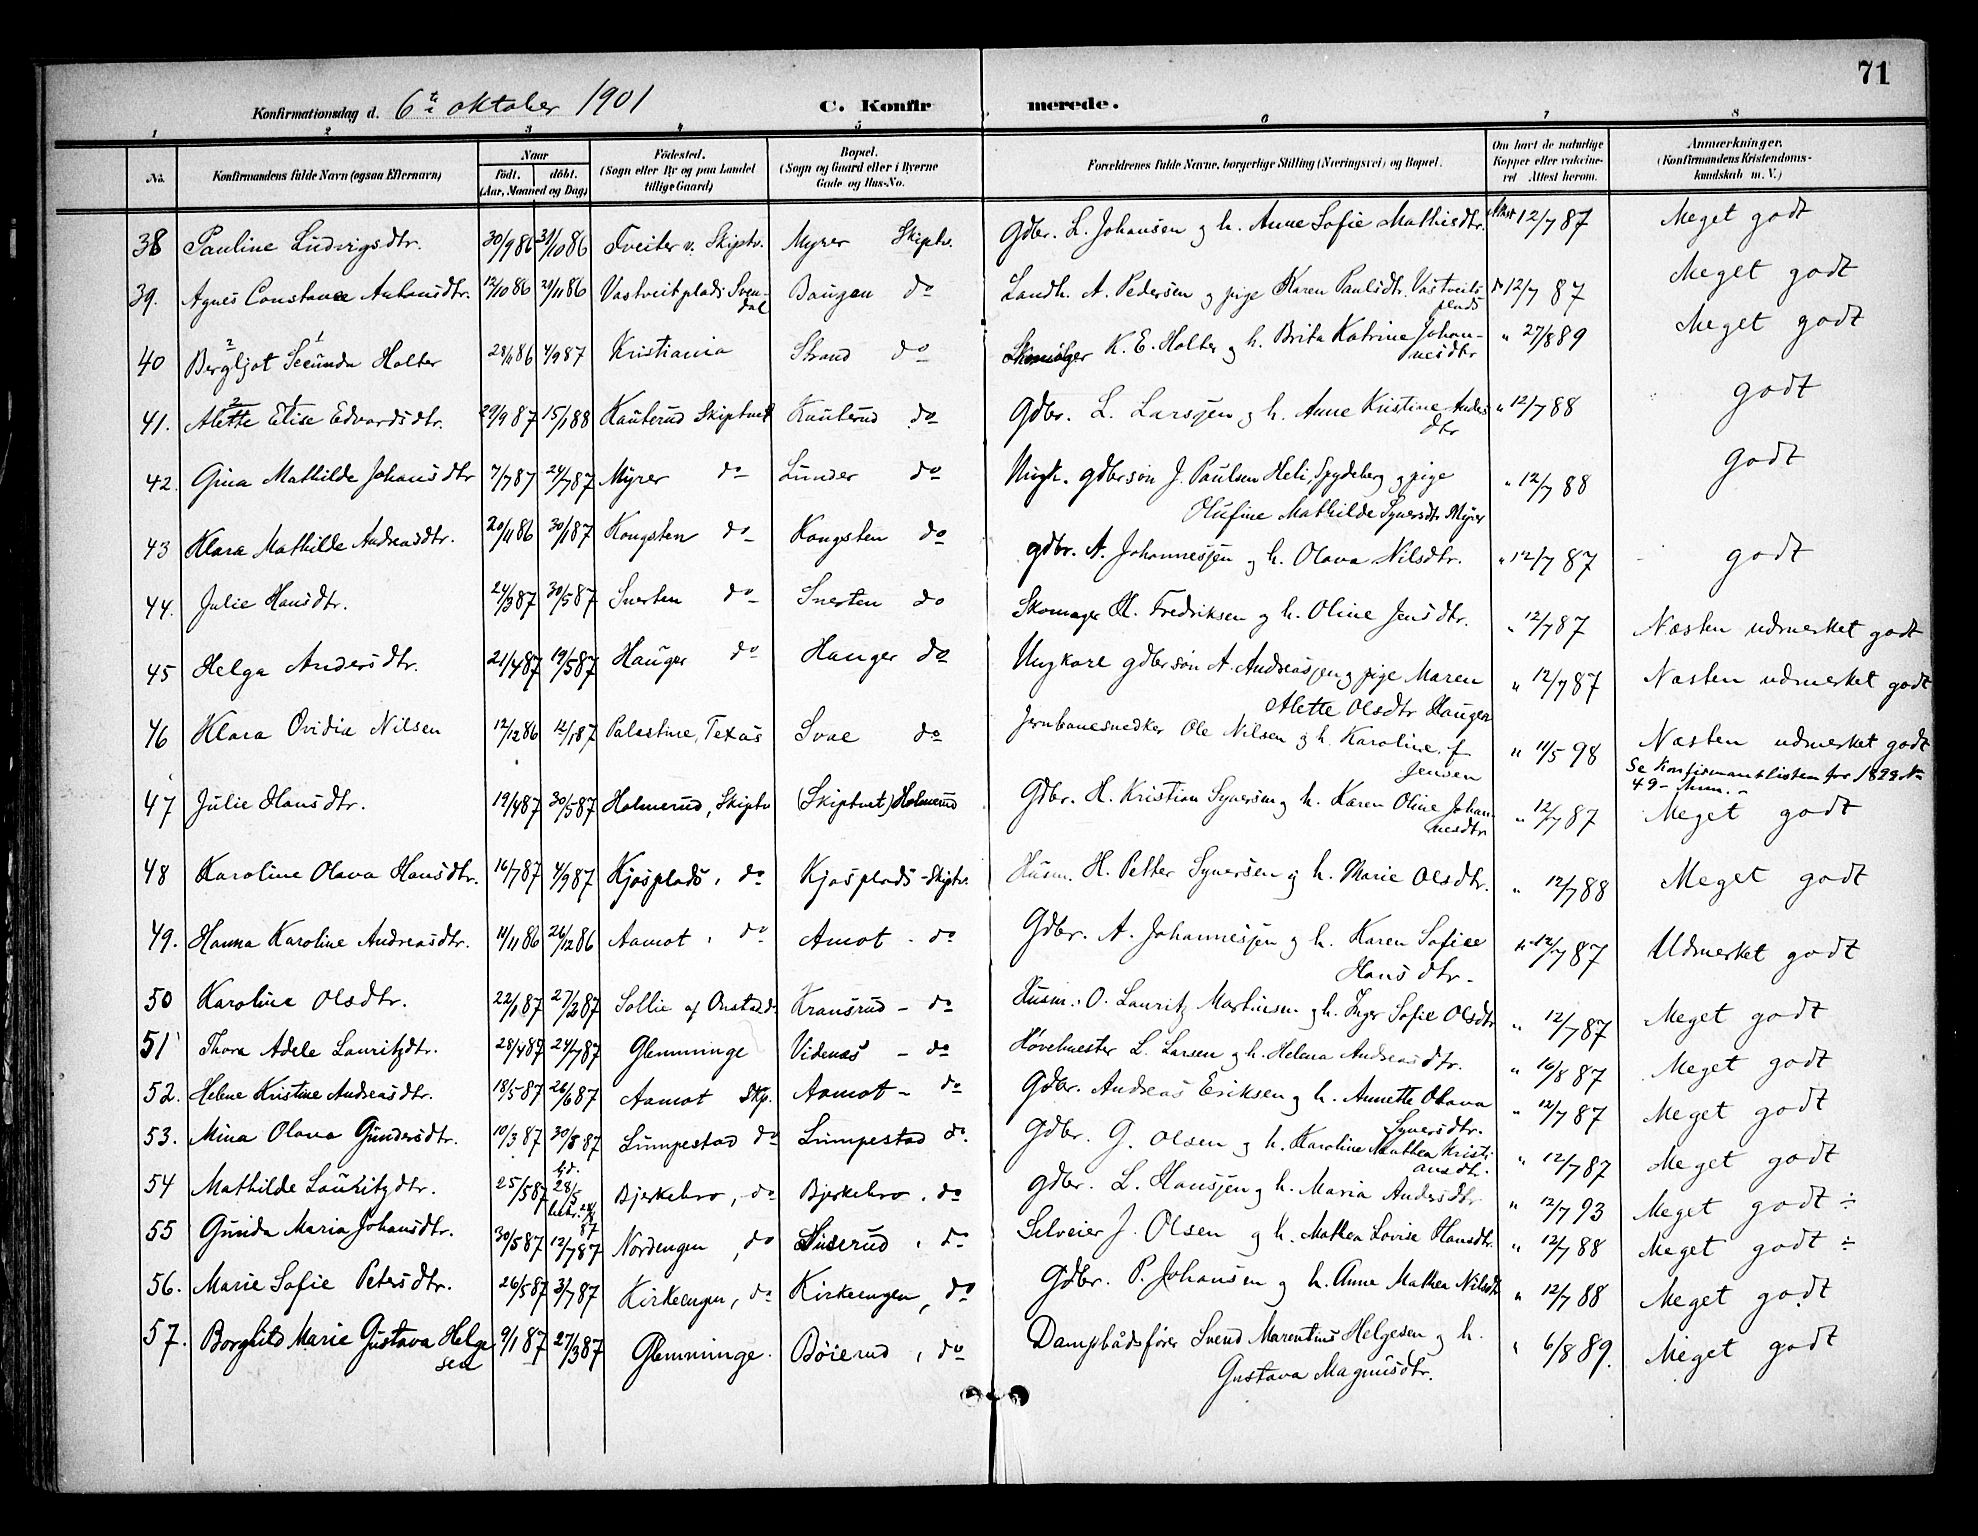 71
Konfirmationsdag d. 6te oktober 1901 C. Konfirmerede.
1 2 3 4 5 6 7 8
No. Konfirmandens fulde Navn (ogsaa Efternavn) Naar født. døbt. (Aar, Maaned og Dag) Fødested. (Sogn eller By og paa Landet tillige Gaard) Bopæl. (Sogn og Gaard eller i Byerne Gade og Hus-No. Forældrenes fulde Navne, borgerlige Stilling (Næringsvei) og Bopæl. Om havt de naturlige Kopper eller vakcineret Attest herom. Anmærkninger. (Konfirmandens Kristendomskundskab m. V.)
38 Pauline Ludvigsdtr. 30/9 86 31/10 86 Tveiter v. Skiptv. Myrer Skiptv. Gdbr. L. Johansen og h. Anne Sofie Mathisdtr. Attest 12/7 87 Meget godt
39. Agnes Constance Antonsdtr. 12/10 86 29/11 86 Vastveitplads Svendal Baugen do Landh. A. Pedersen og pige Karen Paulsdtr. Vastveitsplads do 12/7 87 Meget godt
40 Bergljot 2 Secunda 1 Holter 28/11 86 4/9 87 Kristiania Strand do K. E. Holter og h. Brita Katrine Johannesdtr " 27/8 89 Meget godt
41. Alette 2 Elise 1 Edvardsdtr. 29/9 87 15/1 88 Kauterud Skiptvet Kauterud do Gdbr. L. Larssen og h. Anne Kristine Andersdtr " 12/7 88 godt
42. Gina Mathilde Johansdtr 7/7 87 24/7 87 Myrer do Lunder do Ungk. gdbrsøn J. Paulsen Heli, Spydeberg og pige Olufine Mathilde Syversdtr Myrer " 12/7 88 godt
43 Klara Mathilde Andreasdtr. 20/11 86 30/1 87 Kongsten do Kongsten do gdbr. A. Johannessen og h. Olava Nilsdtr. " 12/7 87 godt
44. Julie Hansdtr. 24/3 87 30/5 87 Snerten do Snerten do Skomager H. Fredriksen og h. Oline Jensdtr. " 12/7 87 Næsten udmerket godt
45 Helga Andersdtr. 21/4 87 19/5 87 Hauger do Hauger do Ungkare gdbrsøn A. Andreassen og pige Maren Alette Olsdtr Haugen " 12/7 87 Næsten udmerket godt
46 Klara Ovidia Nilsen 12/12 86 12/1 87 Palestine, Texas Svae do Jernbanesnedker Ole Nilsen og h. Karoline f. Jensen " 11/5 98 Næsten udmerket godt Se Konfirmantlisten for 1899 No 49 - Anm. -
47 Julie Hansdtr. 19/4 87 30/5 87 Holmerud, Skiptv (Skiptvet) Holmerud Gdbr. H. Kristian Syversen og h. Karen Oline Johannesdtr " 12/7 87 Meget godt
48 Karoline Olava Hansdtr. 16/7 87 4/9 87 Kjosplads, do Kjosplads - Skiptv. Husm. H. Petter Syversen og h. Marie Olsdtr. " 12/7 88 Meget godt
49. Hanna Karoline Andreasdtr. 11/11 86 26/12 86 Aamot, do Amot - do Gdbr. A. Johannessen og h. Karen Sofie Hansdtr. " 12/7 87 Udmerket godt
50 Karoline Olsdtr. 22/1 87 27/2 87 Sollie af Onstad do Kransrud - do Husm. O. Lauritz Martinsen og h. Inger Sofie Olsdtr " 12/7 87 Meget godt
51 Thora Adele Lauritzdtr. 28/4 87 24/7 87 Glemminge Videnæs - do Høvelmester L. Larsen og h. Helena Andreasdtr. " 16/8 87 Meget godt
52. Helene Kristine Andreasdtr. 18/5 87 26/6 87 Aamot Skp. Aamot - do Gdbr. Andreas Eriksen og h. Annette Olava Syversdtr. " 12/7 87 Meget godt
53. Mina Olava Gundersdtr. 10/3 87 30/5 87 Lumpestad do Lumpestad do. Gdbr. G. Olsen og h. Karoline Mathea Kristiansdtr. " 12/7 87 Meget godt
54 Mathilde Lauritzdtr. 25/5 87 hjd. 28/5 Bjerkebro, do Bjerkebro, do gdbr. L. Hanssen og h. Maria Andersdtr " 12/7 93 Meget godt ÷
55 Gunda Maria Johansdtr. 30/5 87 12/7 87 Nordengen, do Huserud, do Selveier J. Olsen og h. Mathea Lovise Hansdtr. " 12/7 88 Meget godt ÷
56. Marie Sofie Petersdtr. 26/5 87 3/7 87 Kirkeengen, do Kirkeengen, do Gdbr. P. Johansen og h. Anne Mathea Nilsdtr " 12/7 88 Meget godt
57. Borghild Marie Gustava Helgesen 9/1 87 27/3 87 Glemminge. Bøierud, do Dampbådsfører Svend Marentius Helgesen og h. Gustava Magnusdtr. " 6/8 89. Meget godt